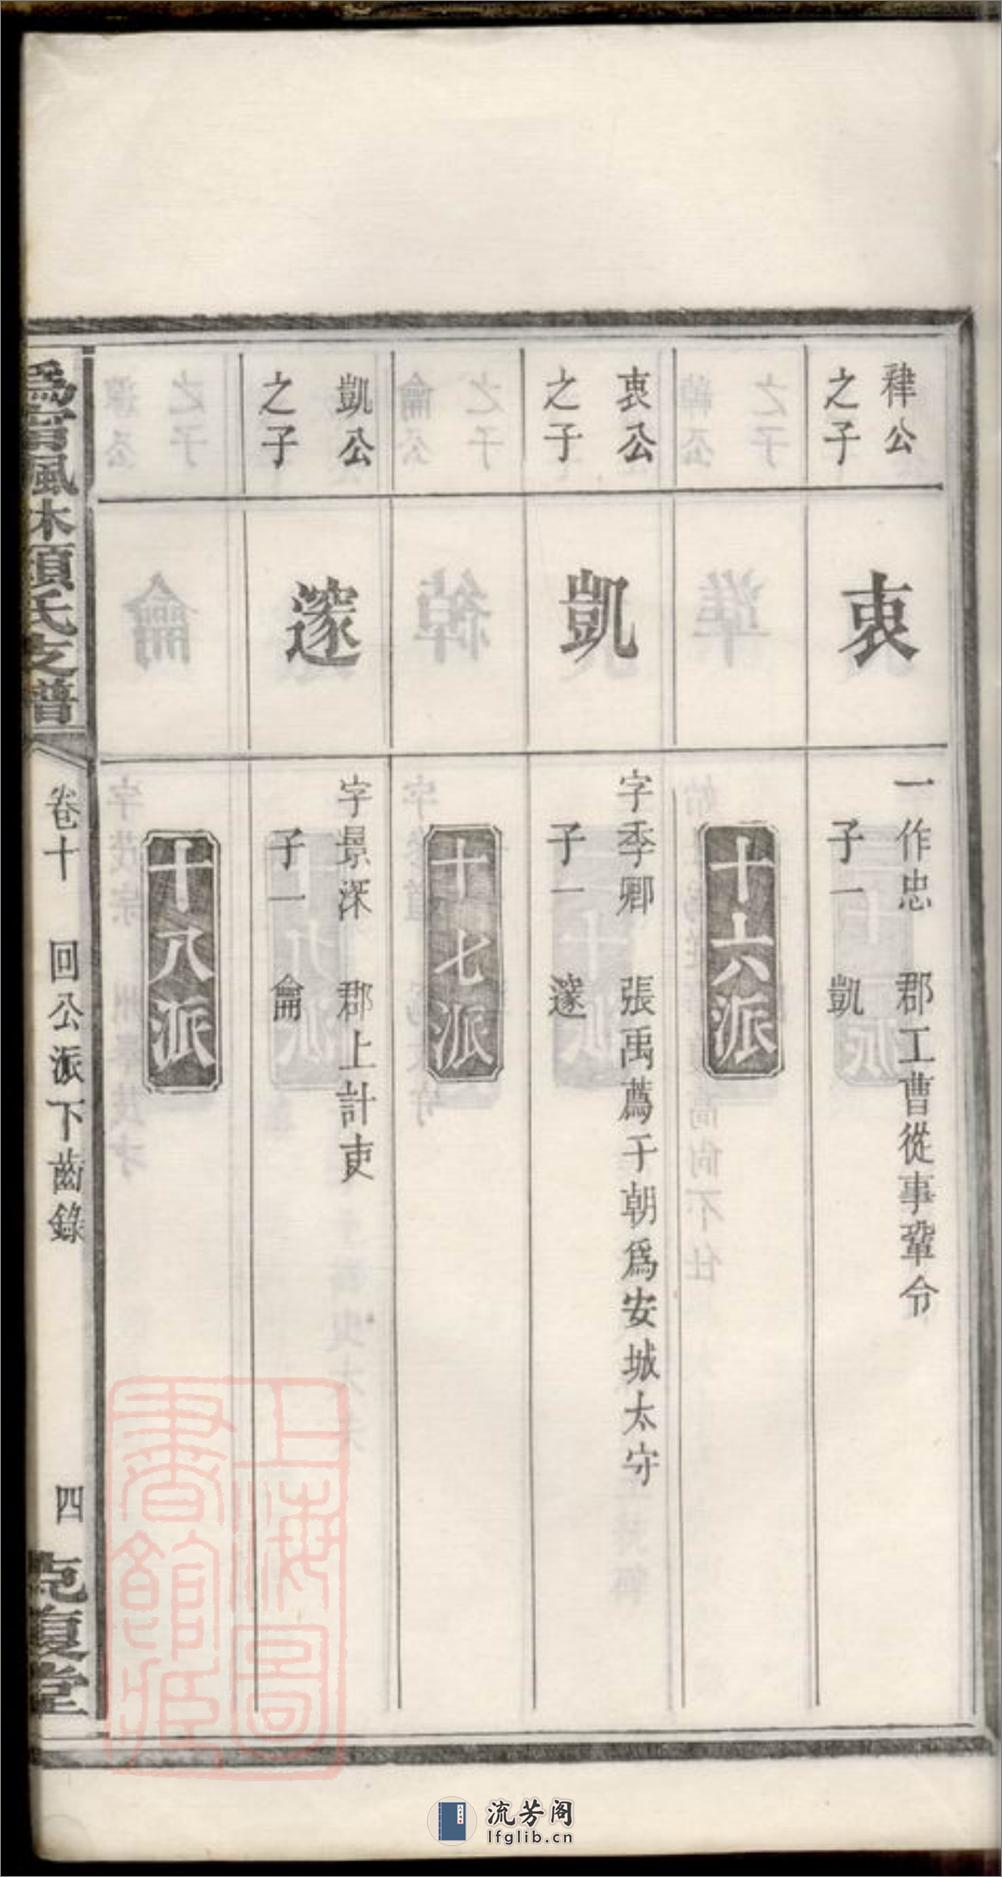 䄵公
之子
衷
一作忠　郡工曹從事鞏令
子一　凱
十六派
衷公
之子
凱
字季卿　張禹薦于朝爲安城太守
子一　邃
十七派
凱公
之子
邃
字景深　郡上計吏
子一　侖
十八派
氏支譜
卷十　回公派下齒錄
四
克復堂
上海圖
書館藏
流芳阁
lfglib.cn